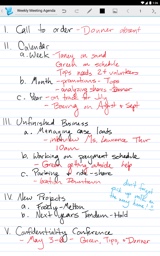 Weekly Meeting Agenda
I. Call to order - Donner absent
II. Calendar
a. Week - Torrey on sand
Green on schedule
Tops needs 2+ volunteers
b. Month - promotions - Tops
- analyzing share - Donner
c. Year - on track for July
- Boering on August + Sept
III. Unfinished Business
a. Managing case loads
- interview Ms. Lawrence Thur
10am
b. Working on payment schedule
- Green getting outside help
c. Parking + ride-share
- Downtown
don't forget
IV. New Projects
a. Freddy - Melton
b. Next Years Tandem - Hold
V. Confidentiality Conference
- May 3-6 - Green, Tops, + Donner